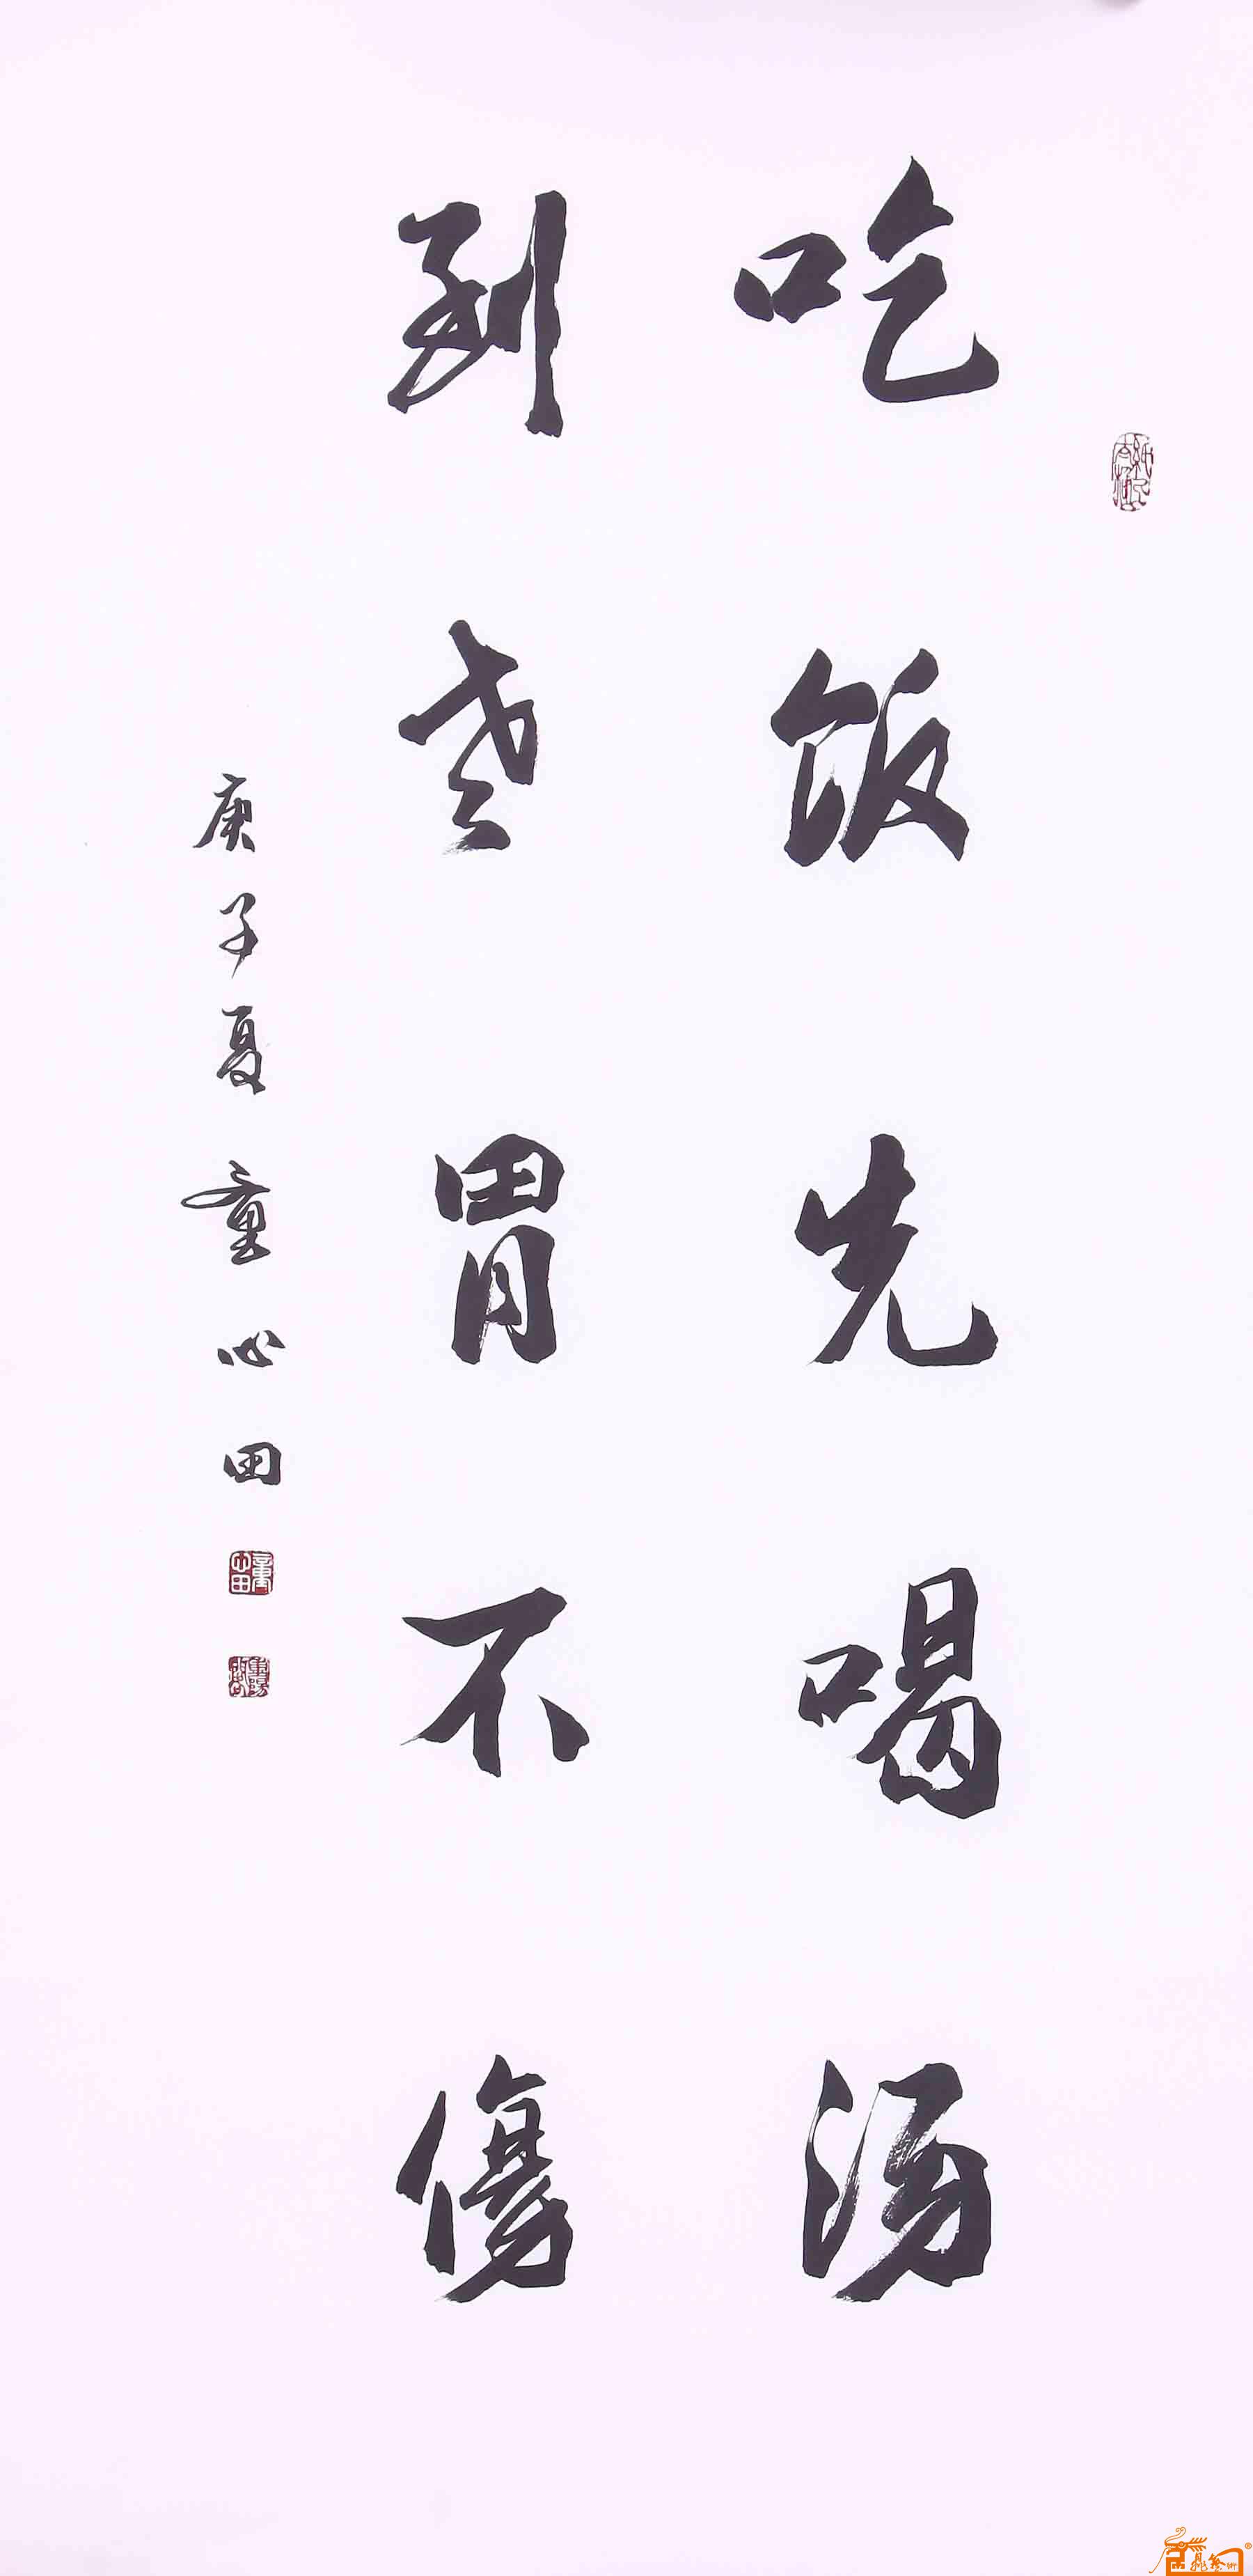 吃饭先喝汤
到老胃不傷
庚子夏童心田